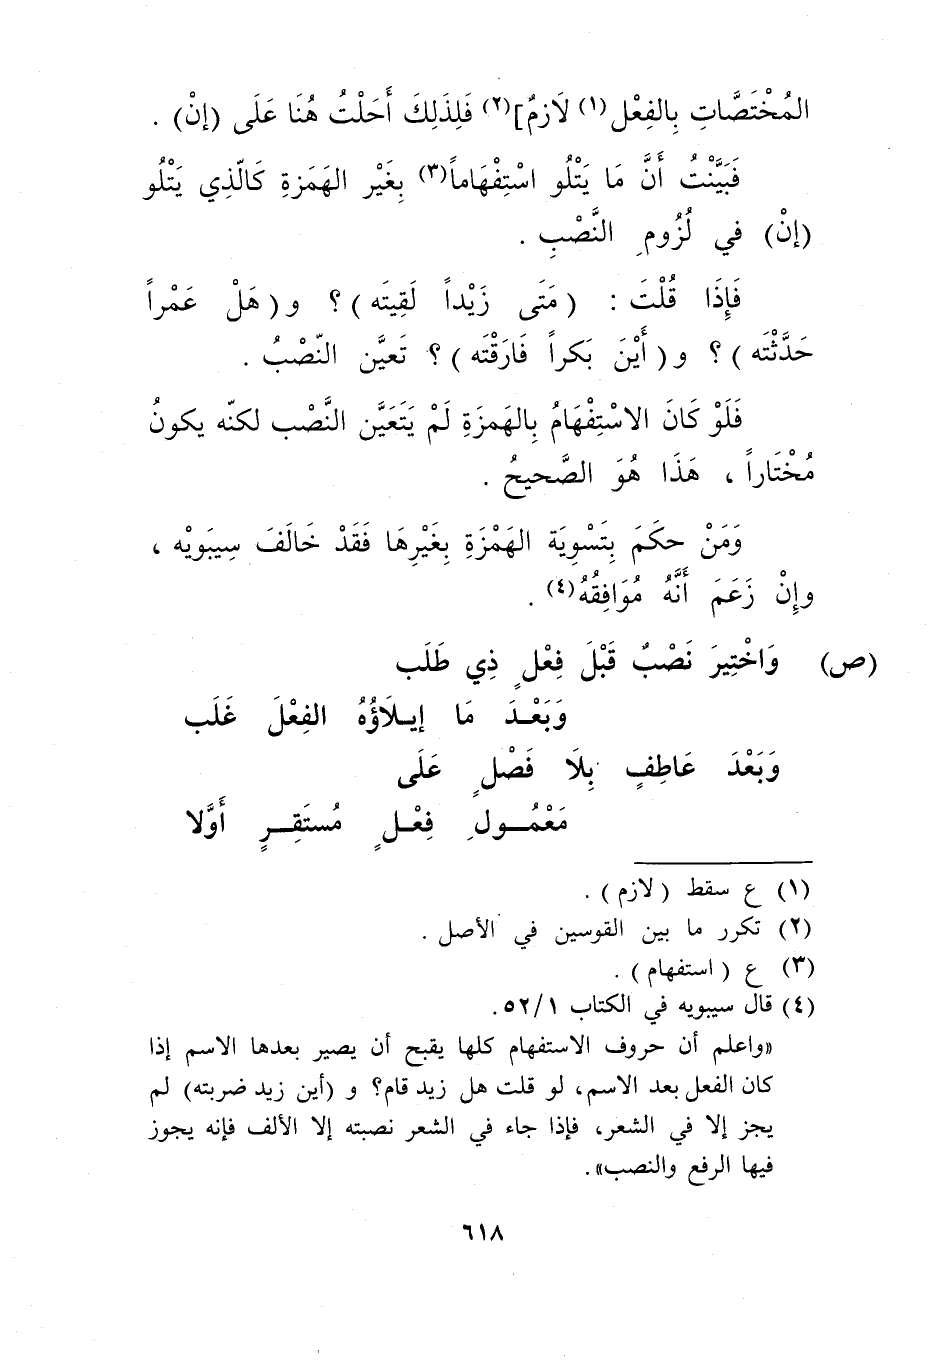 المُخْتَصَّاتِ بِالفِعْل(١) لَازِمٌ](٢) فَلِذَلِكَ أَحَلْتُ هُنَا عَلَى (إنْ) .
فَبَيَّنْتُ أَنَّ مَا يَتْلُو اسْتِفْهَاماً(٣) بِغَيْر الهَمَزةِ كَالّذِي يَتْلُو
(إنْ) في لُزُومِ النَّصْبِ .
فَإِذَا قُلْتَ : (مَتَى زَيْداً لَقِيتَه)؟ و(هَلْ عَمْراً
حَدَّثْتَه)؟ و(أَيْنَ بَكراً فَارَقْتَه)؟ تَعيَّن النّصْبُ .
فَلَوْ كَانَ الاسْتِفْهَامُ بِالهَمزَةِ لَمْ يَتَعَيَّن النَّصْب لكنّه يكونُ
مُخْتَاراً ، هَذَا هُوَ الصَّحيحُ .
وَمَنْ حكَمَ بِتَسْوِيَة الهَمْزَةِ بِغَيْرِهَا فَقَدْ خَالَفَ سِيبَوَيْه ،
وإِنْ زَعَمَ أَنَّهُ مُوَافِقُهُ(٤) .
(ص) وَاخْتِيرَ نَصْبٌ قَبْلَ فِعْلٍ ذِي طَلَب
وَبَعْدَ مَا إيلَاؤُهُ الفِعْلَ غَلَب
وَبَعْدَ عَاطِفٍ بِلَا فَصْلٍ عَلَى
مَعْمُولِ فِعْلٍ مُستَقِرٍ أَوَّلا
(١) ع سقط (لازم) .
(٢) تكرر ما بين القوسين في الأصل .
(٣) ع (استفهام) .
(٤) قال سيبويه في الكتاب ٥٢/١.
«واعلم أن حروف الاستفهام كلها يقبح أن يصير بعدها الاسم إذا
كان الفعل بعد الاسم، لو قلت هل زيد قام؟ و (أين زيد ضربته) لم
يجز إلا في الشعر، فإذا جاء في الشعر نصبته إلا الألف فإنه يجوز
فيها الرفع والنصب».
٦١٨